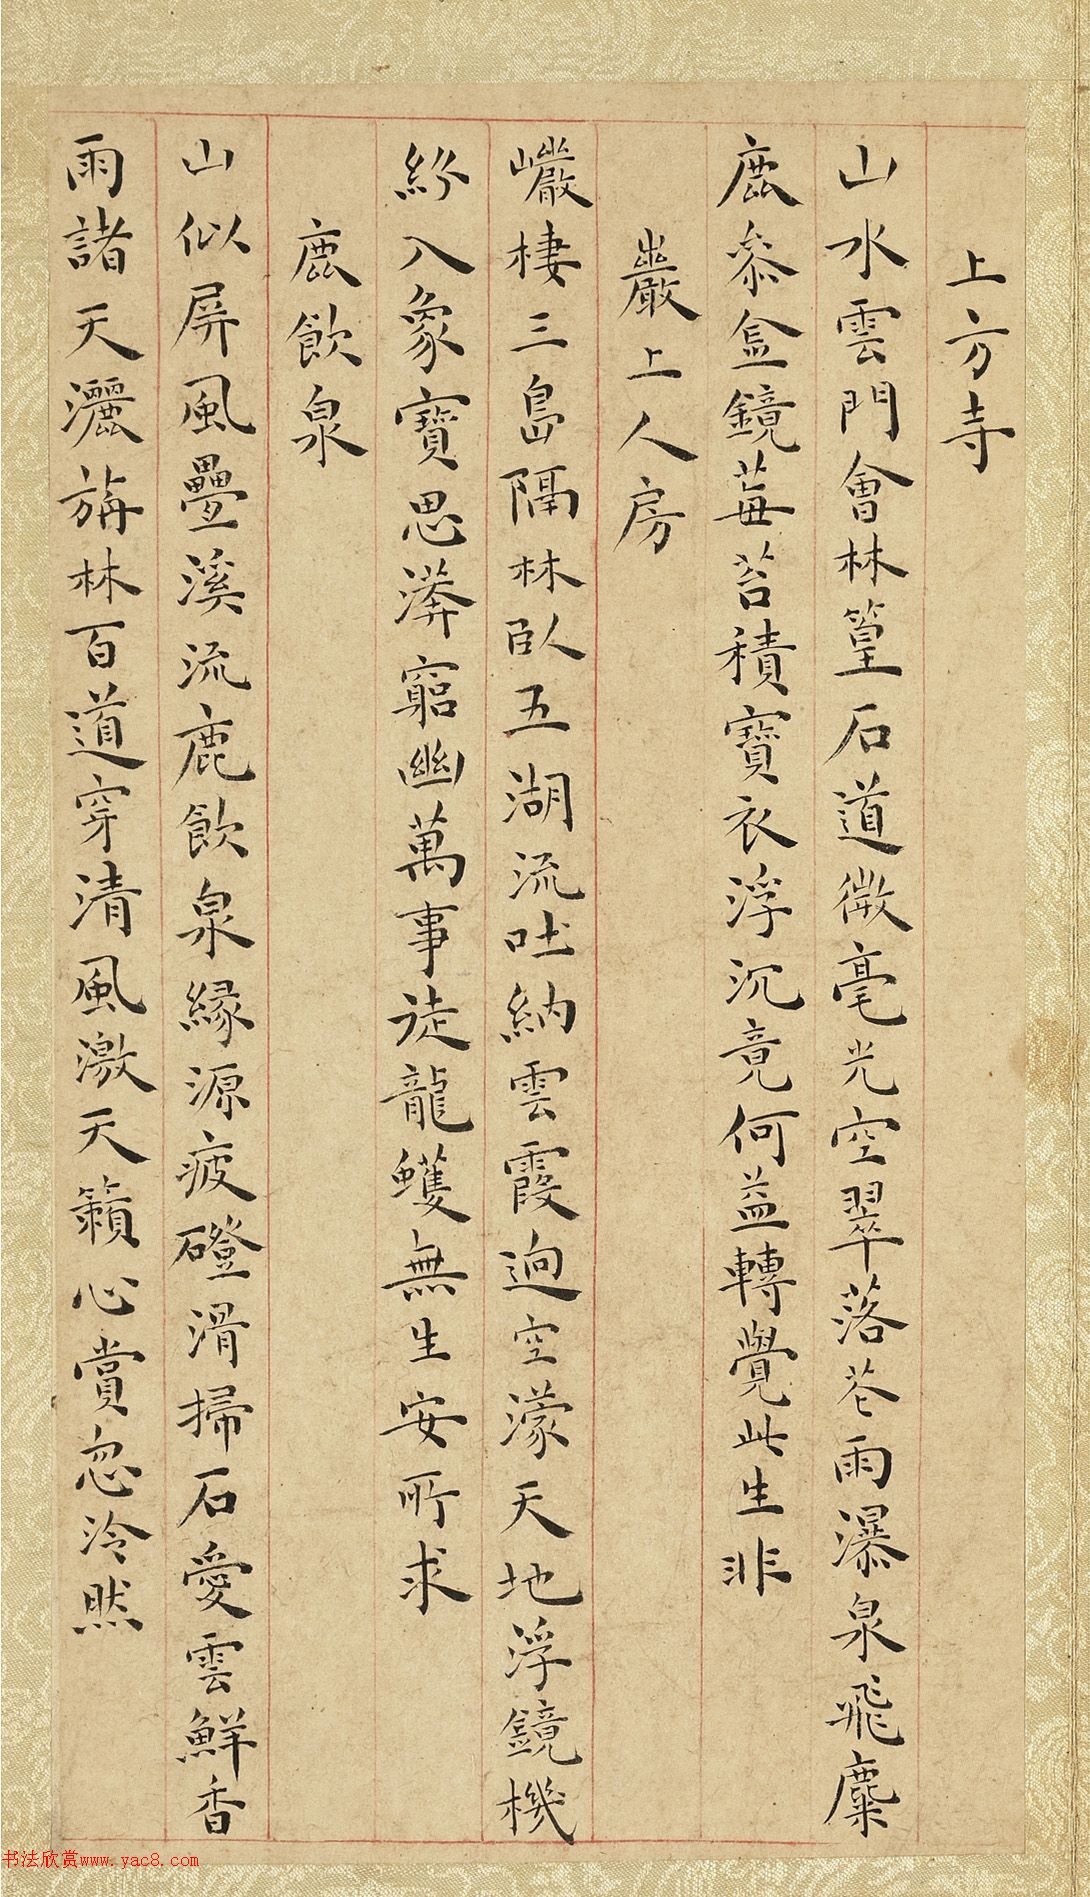 上方寺
山水雲門會林篁石道微毫光空翠落花雨瀑泉飛麋
鹿參奩鏡莓苔積寶衣浮沉竟何益轉覺此生非
巖上人房
巖棲三島隔林臥五湖流吐納雲霞逈空濛天地浮鏡機
紛入象寶思漭窮幽萬事徒龍蠖無生安所求
鹿飲泉
山似屏風疊溪流鹿飲泉緣源疲磴滑掃石愛雲鮮香
雨諸天灑旃林百道穿清風激天籟心賞忽泠然
书法欣赏www.yac8.com